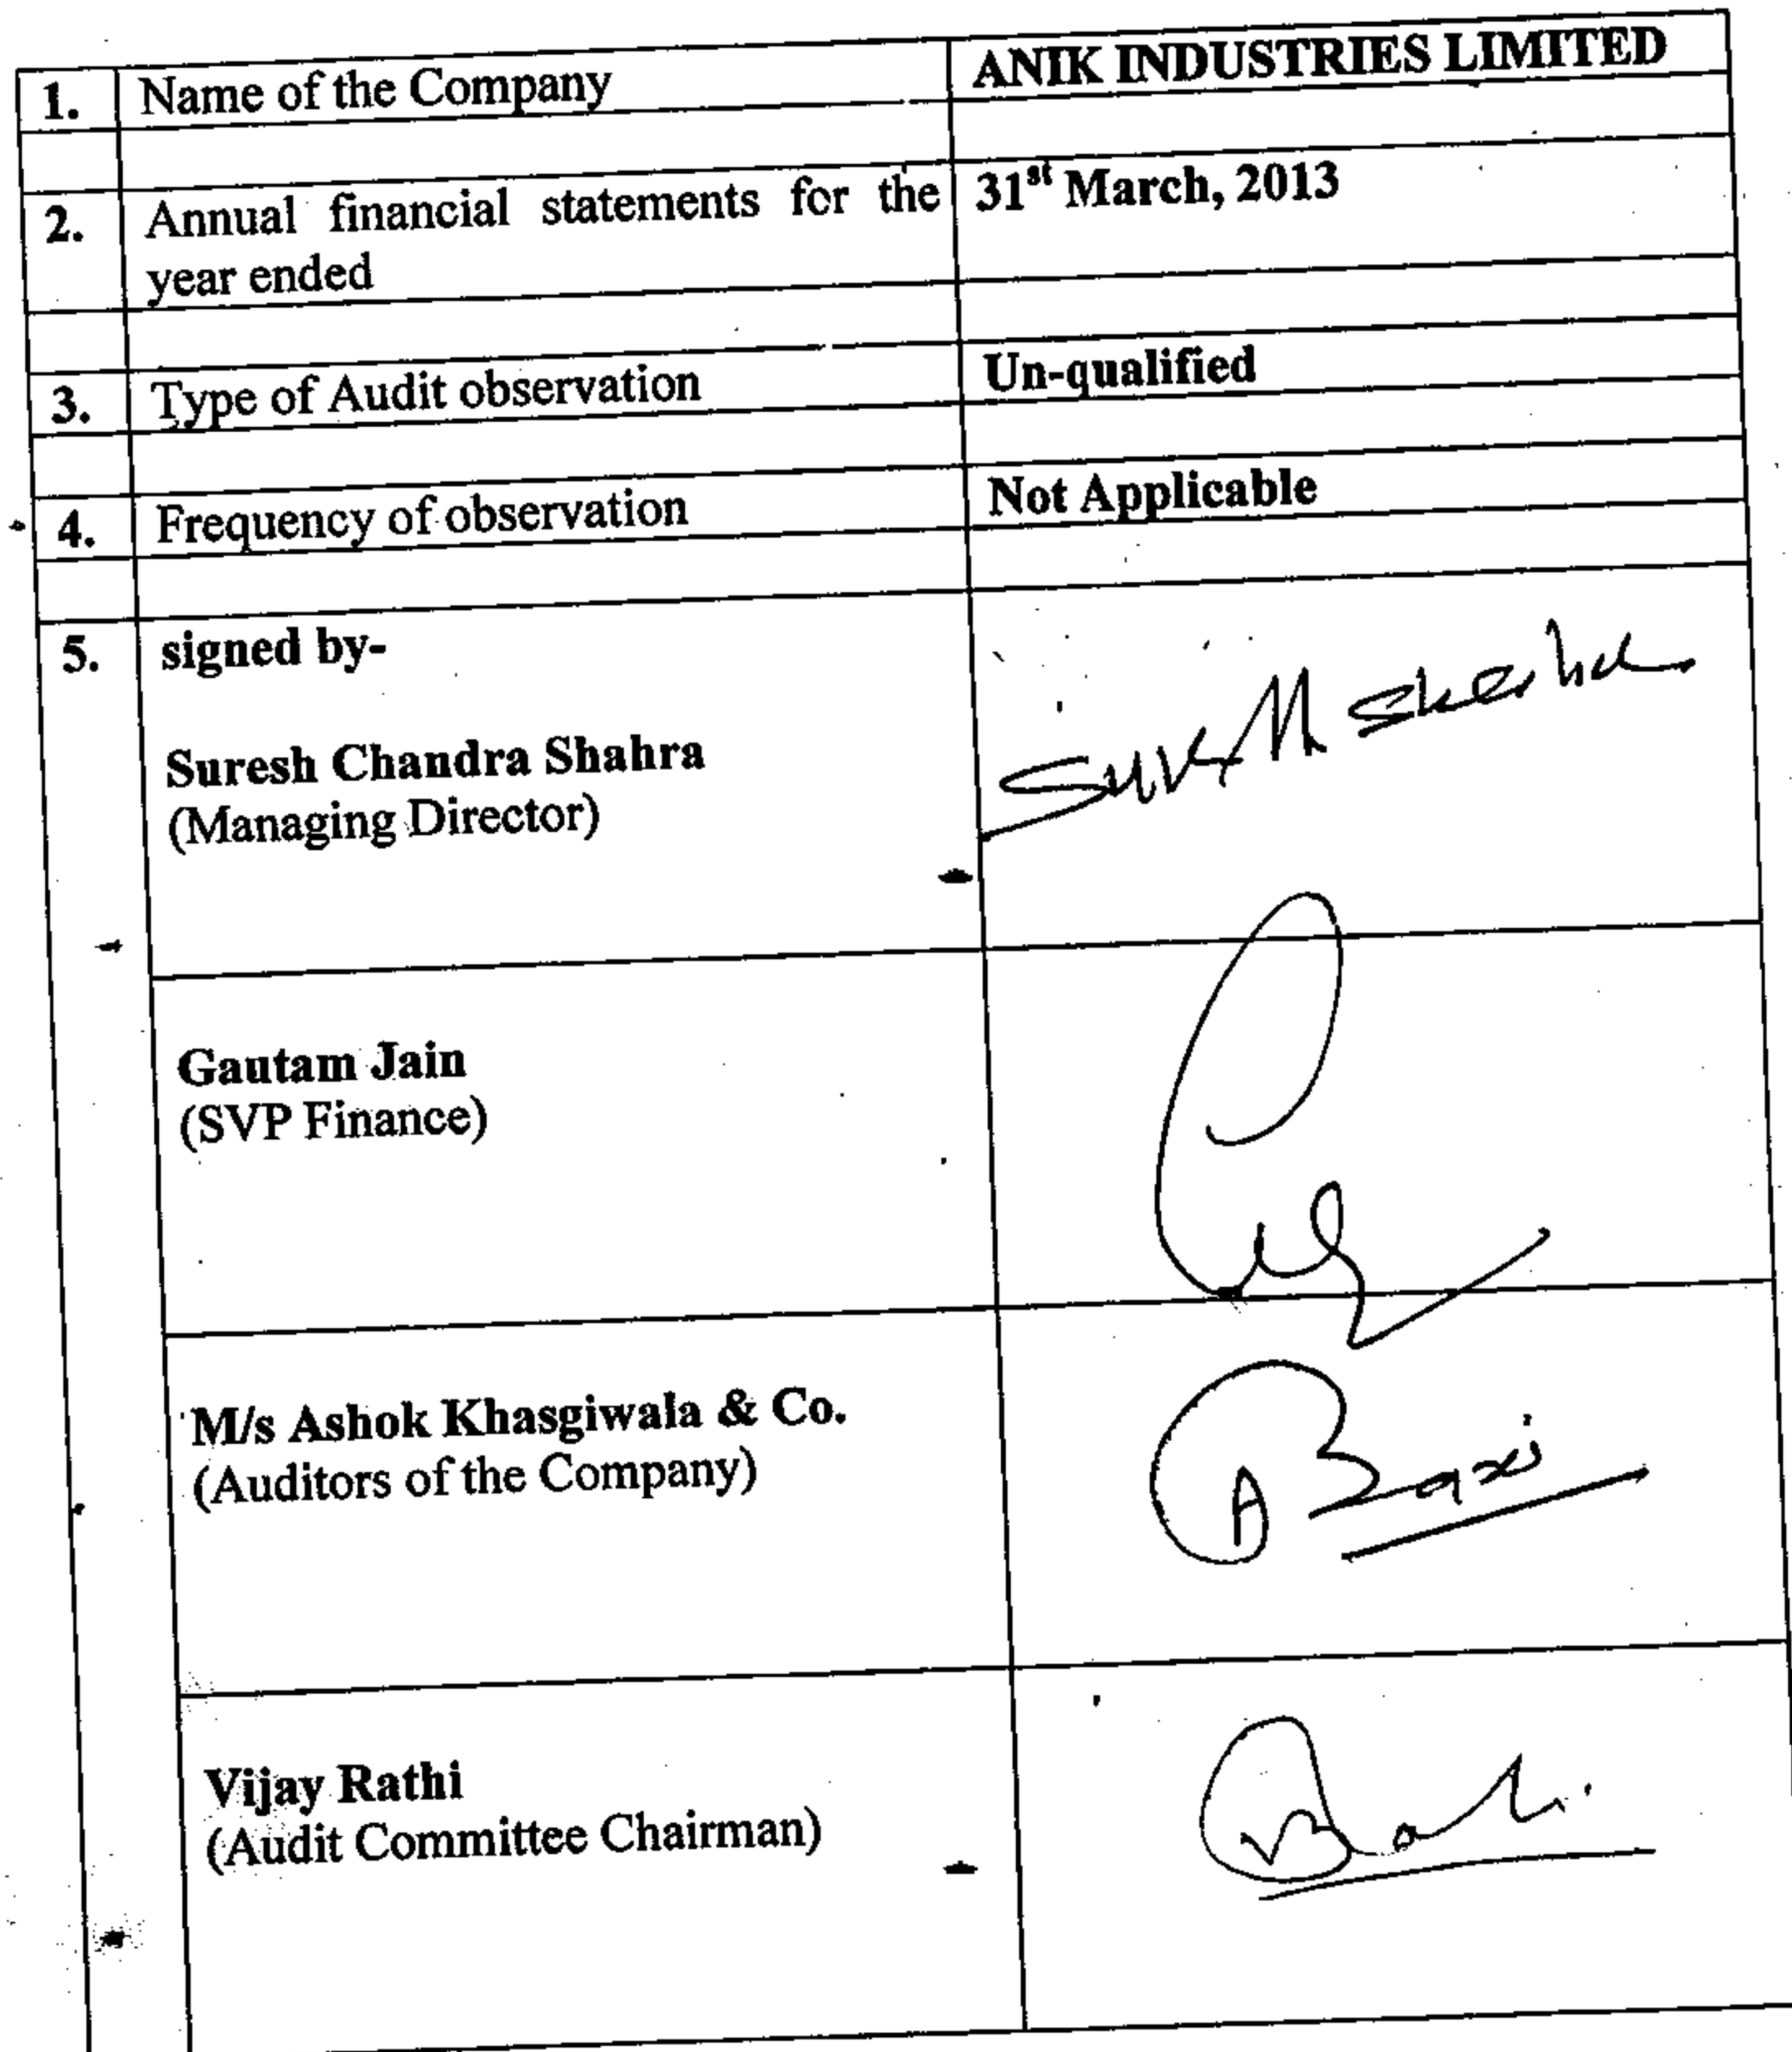 1. Name of the Company ANIK INDUSTRIES LIMITED
2. Annual financial statements for the 31st March, 2013
year ended
3. Type of Audit observation Un-qualified
4. Frequency of observation Not Applicable
5. signed by-
Suresh Chandra Shahra
(Managing Director)
Gautam Jain
(SVP Finance)
M/s Ashok Khasgiwala & Co.
(Auditors of the Company)
Vijay Rathi
(Audit Committee Chairman)